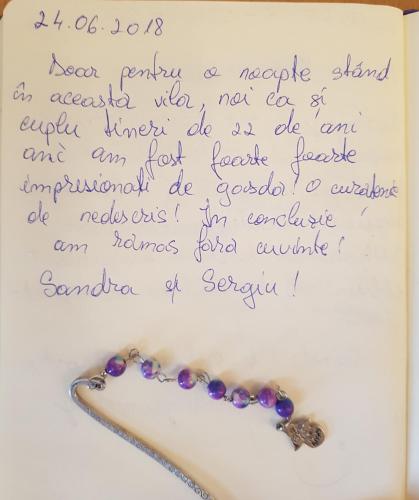 24.06.2018
Doar pentru o noapte stând
în aceasta vila, noi ca și
cuplu tineri de 22 de ani
anì am fost foarte foarte
impresionați de gasda! O curațenie
de nedescris! În concluzie,
am ramas fara cuvinte!
Sandra și Sergiu!